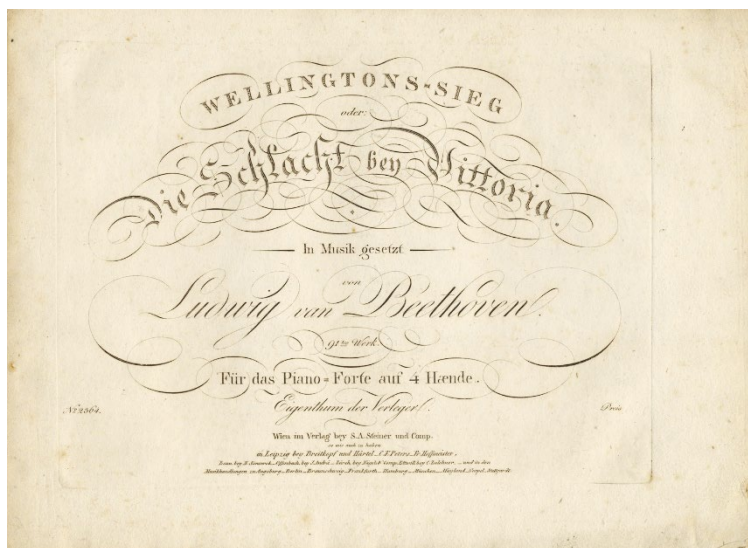 WELLINGTONS=SIEG
oder:
Die Schlacht bey Vittoria.
In Musik gesetzt
von
Ludwig van Beethoven.
91tes Werk.
Für das Piano=Forte auf 4 Hænde.
No 2364.
Eigenthum der Verleger.
Preis
Wien im Verlag bey S.A. Steiner und Comp.
so wie auch zu haben
in Leipzig bey Breitkopf und Härtel, C.F. Peters, Fr. Hofmeister.
Bonn bey N. Simrock, Offenbach bey J. André
Musikhandlungen in Augsburg, Berlin, Braunschweig, Frankfurth, Hamburg, München, Mayland, Neapel, Stuttgardt.